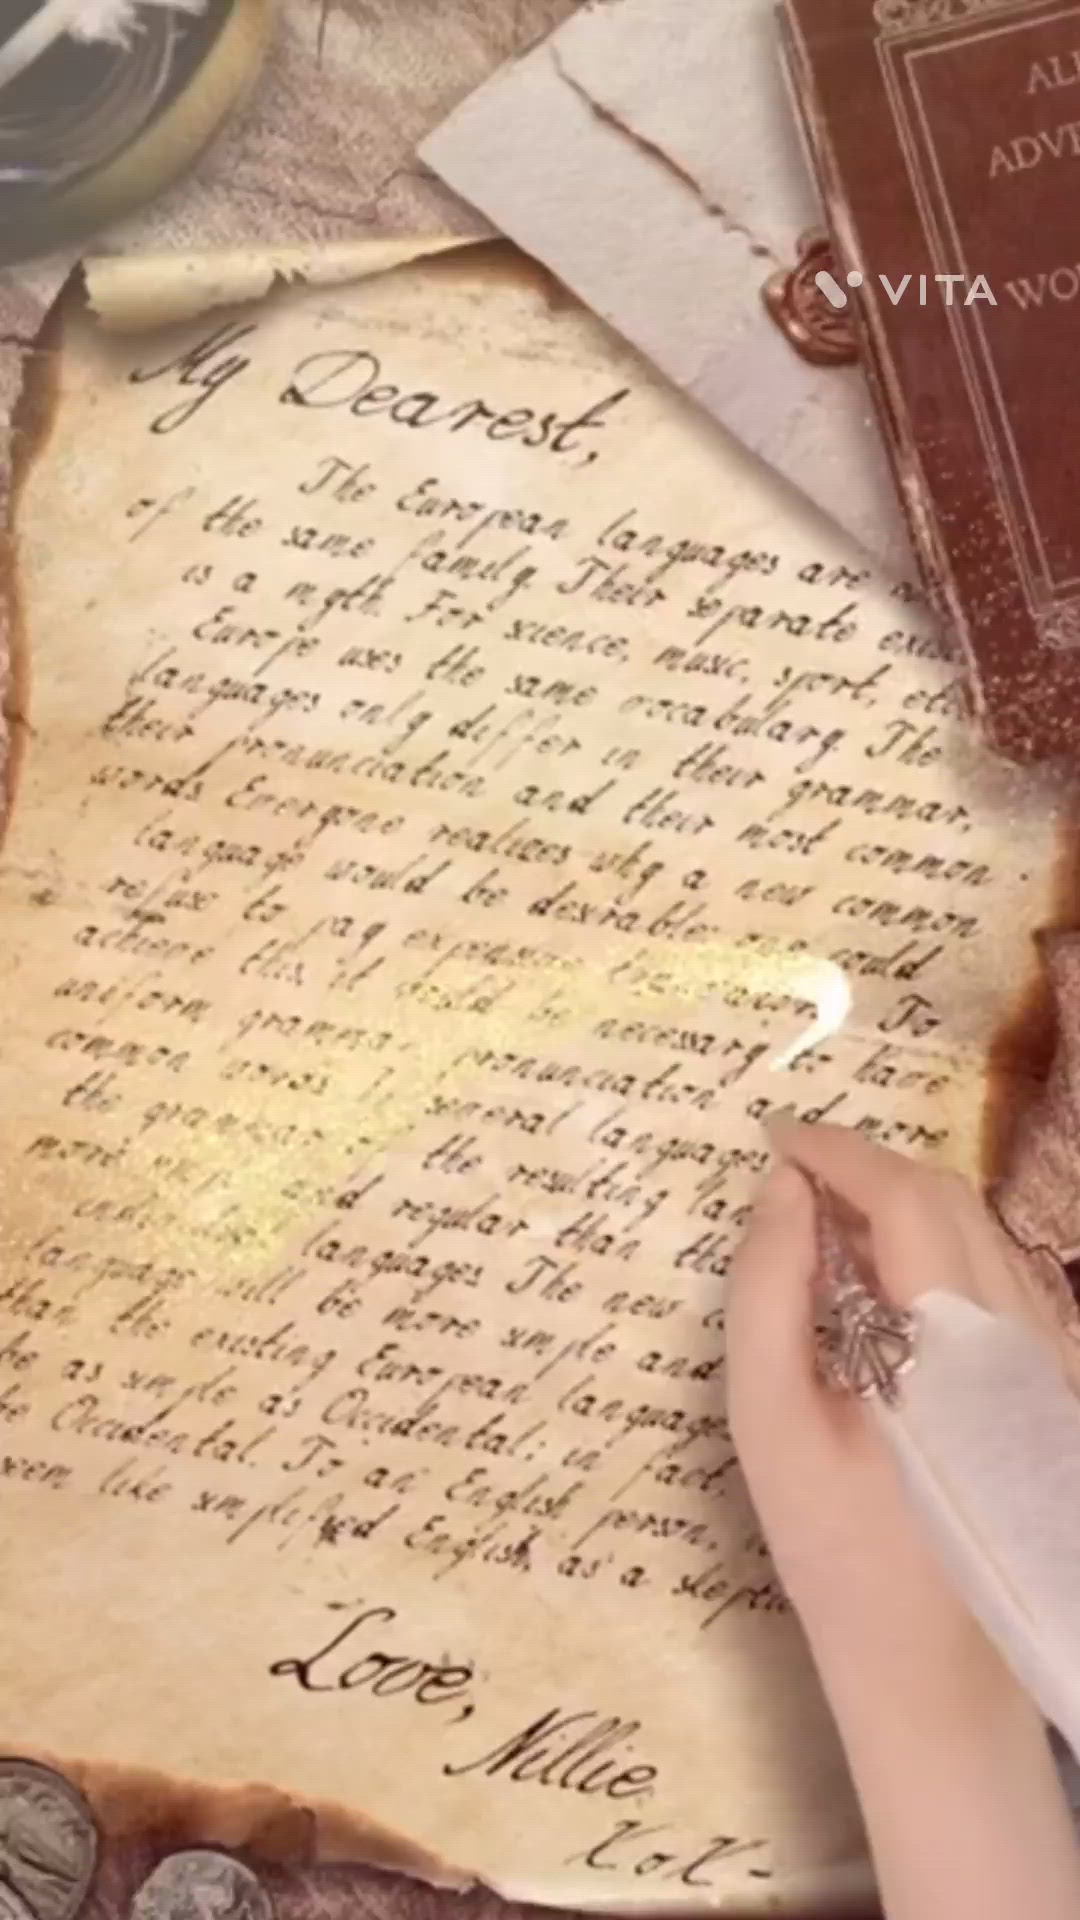 ADV
VITA
WO
My Dearest,
The European languages are
of the same family. Their separate
is a myth. For science, music, sport, etc
Europe uses the same vocabulary. The
languages only differ in their grammar,
their pronunciation and their most common
words. Everyone realizes why a new common
language would be desirable: one could
refuse to pay expensive To
achieve this, it would be necessary to have
uniform grammar, pronunciation and more
common words. several languages
the grammar of the resulting lan
more and regular than tha
individual languages. The new
language will be more simple and
than the existing European language
be as simple as Occidental: in fact,
be Occidental. To an English person,
seem like simplified English, as a skeptic
Love,
Nillie.
XoX-